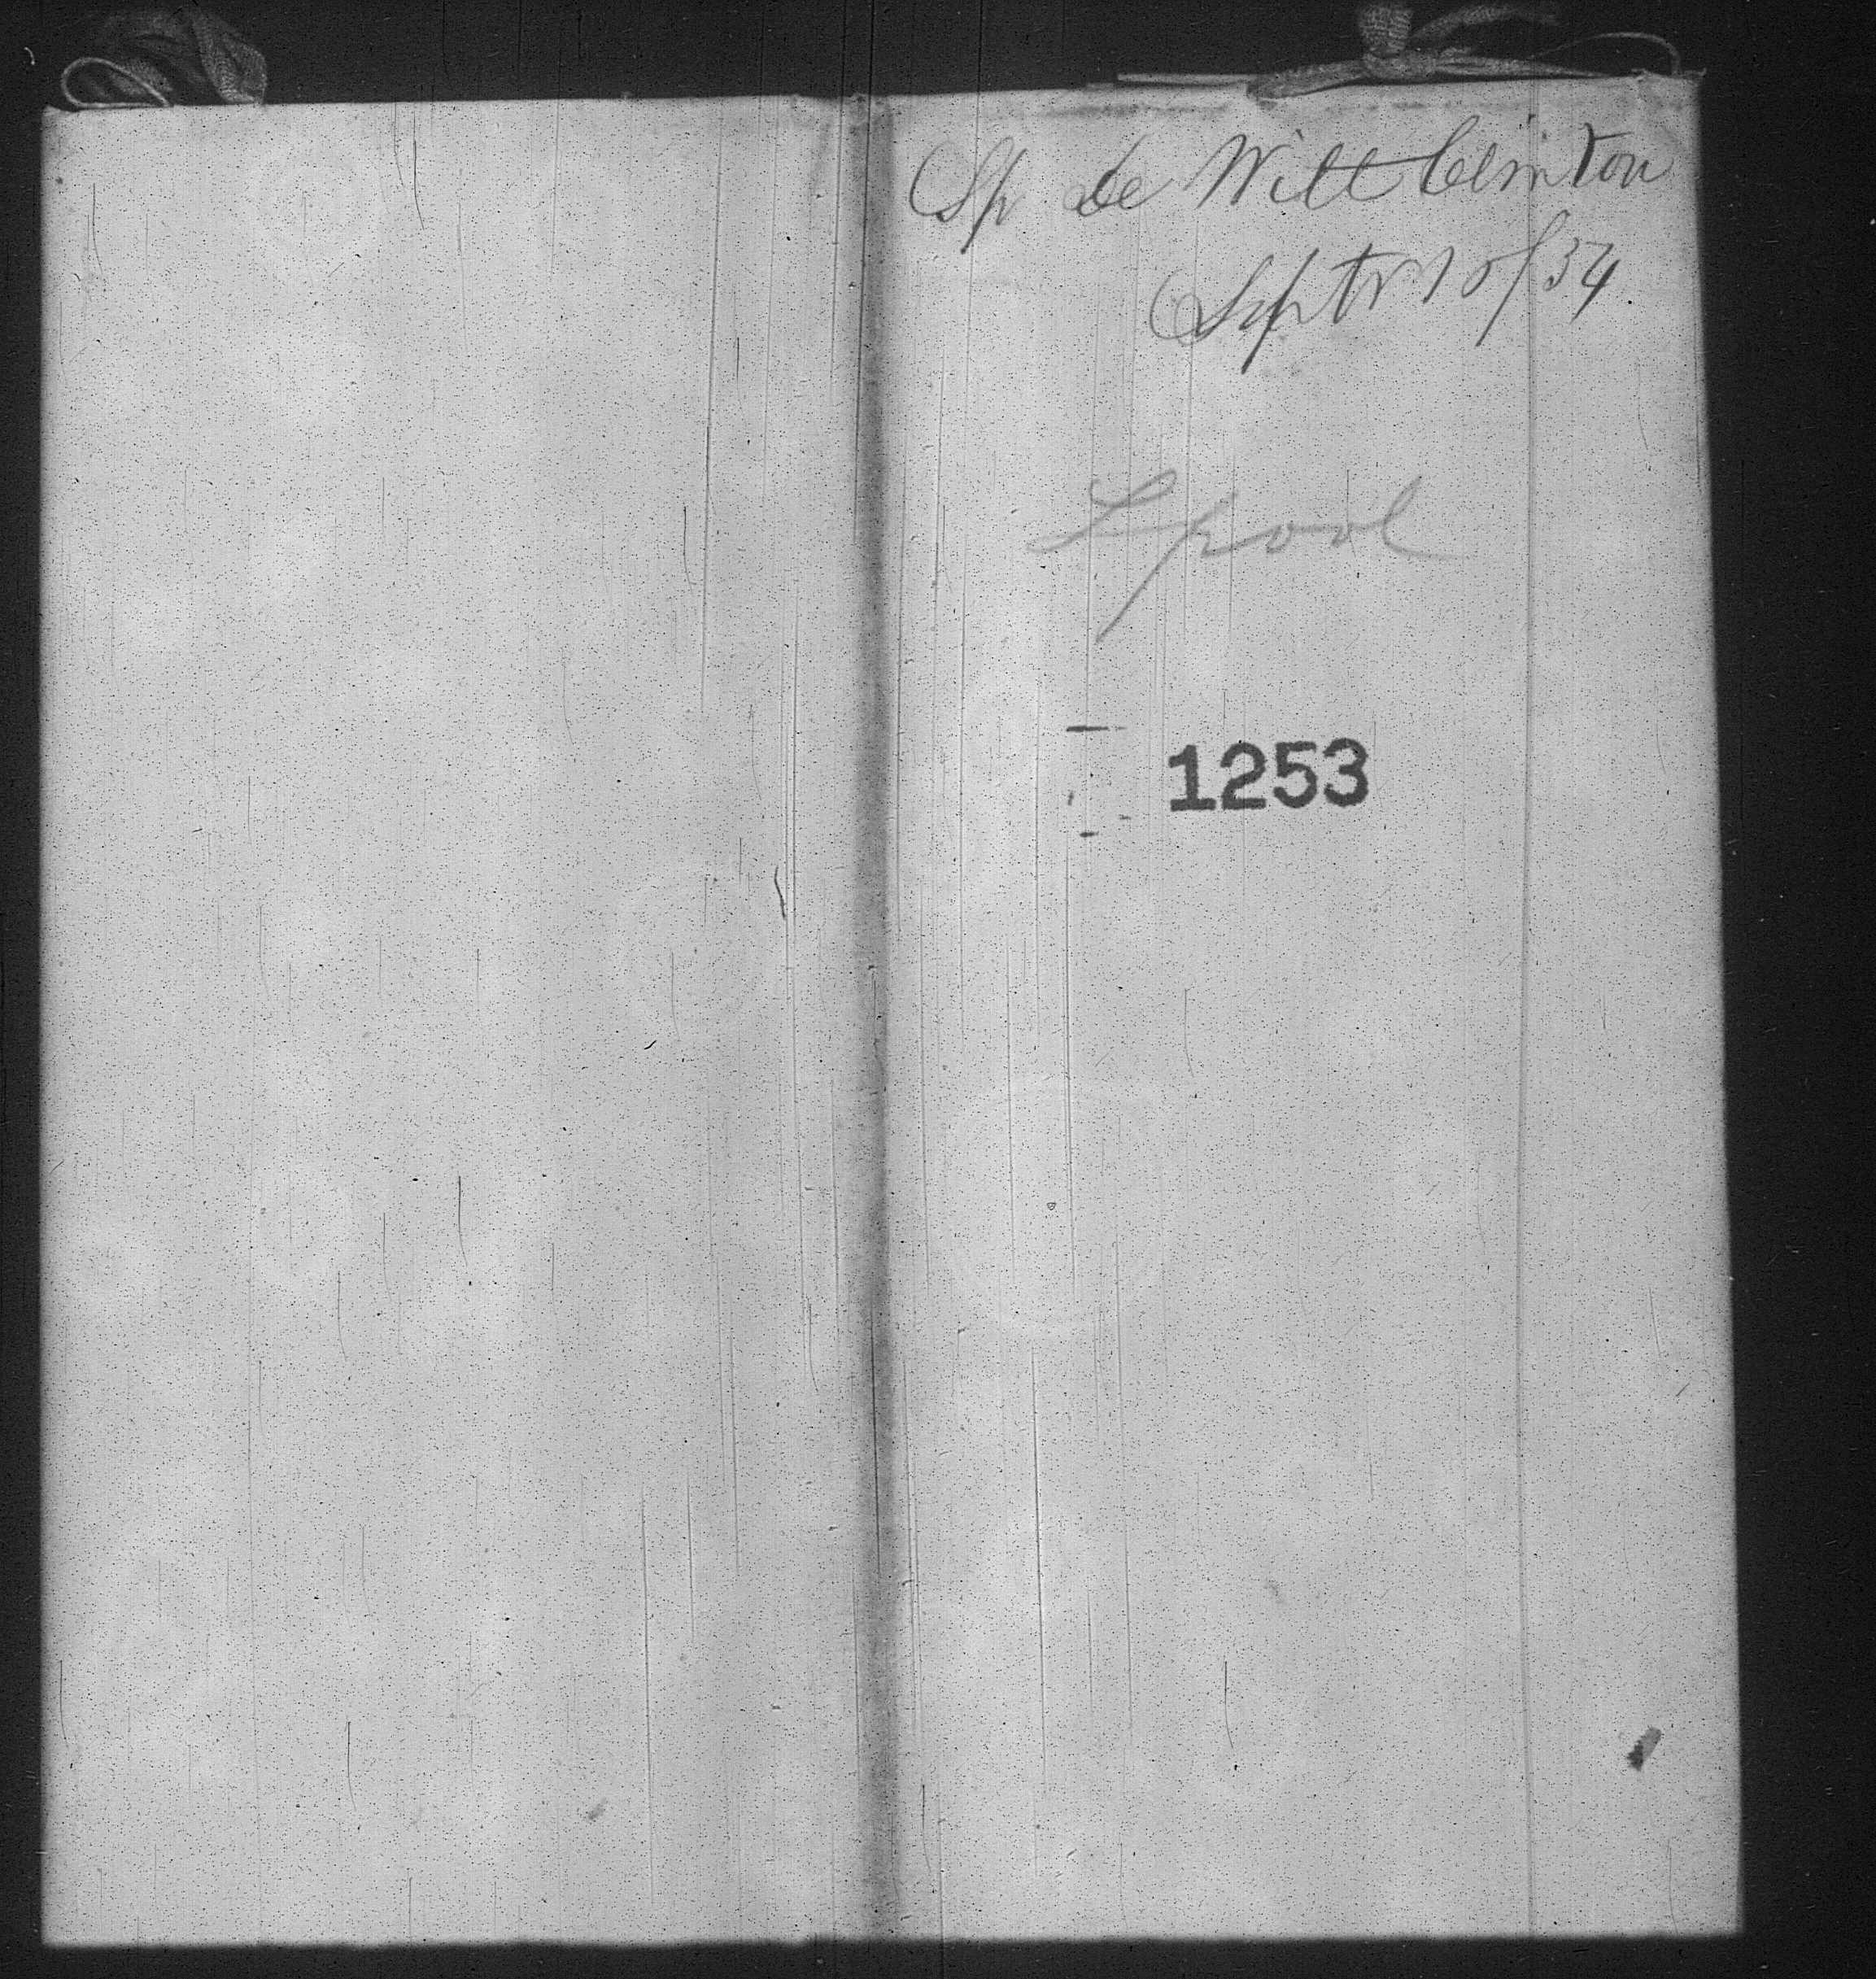 Sp de Witt Clinton
Septr 10/34
Lpool
1253